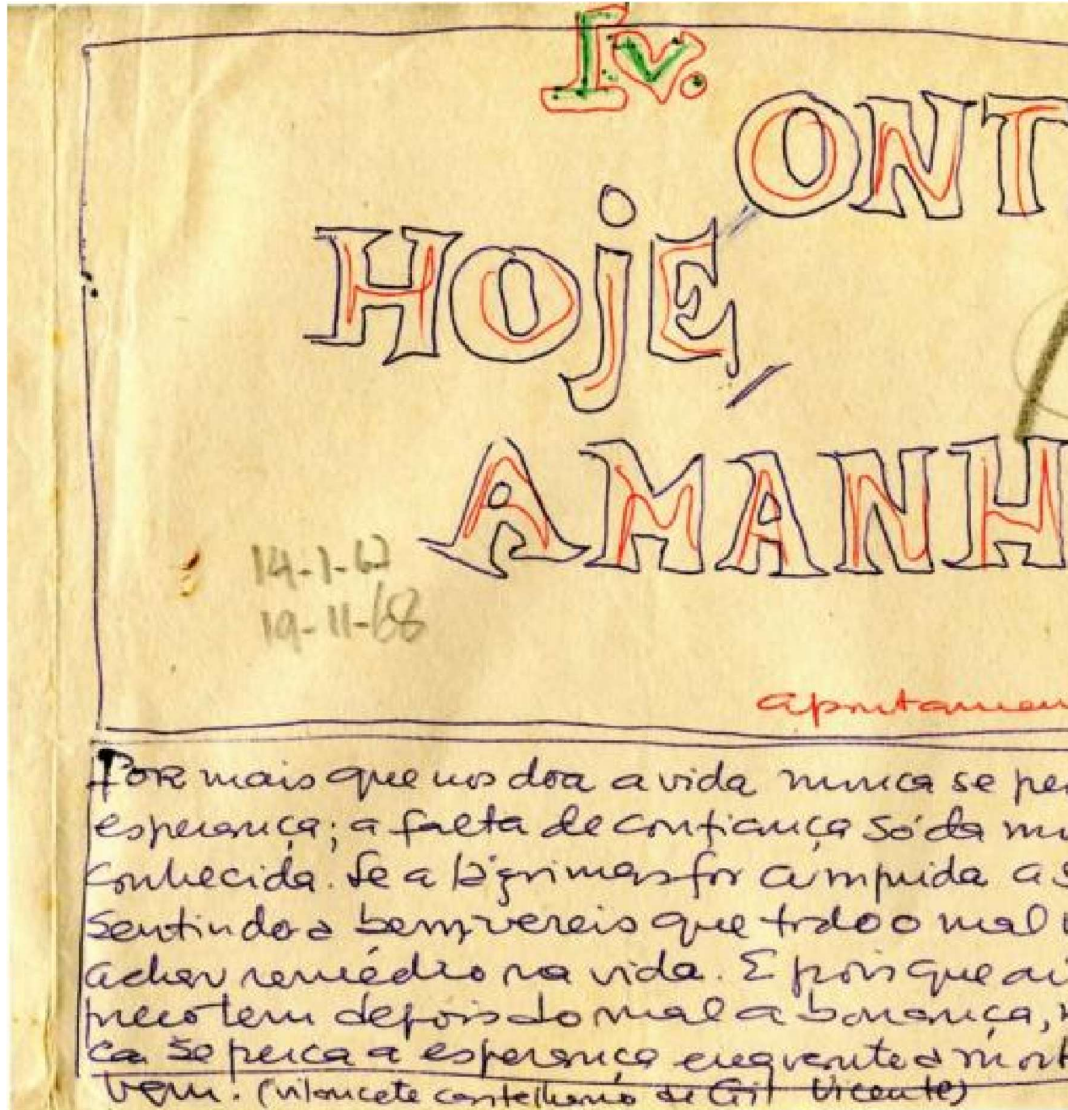 IV.
ONT
HOJE,
AMANH
14-1-62
19-11-68
apontamen
Por mais que nos doa a vida nunca se per
esperança; a falta de confiança só da mo
conhecida. Se a lágrimas for cumprida a s
sentindo a bem, vereis que todo o mal
achar remédio na vida. E pois que
tem depois do mal a bonança, n
ca se perca a esperança enquanto a mort
vem. (vilancete castelhano de Gil Vicente)